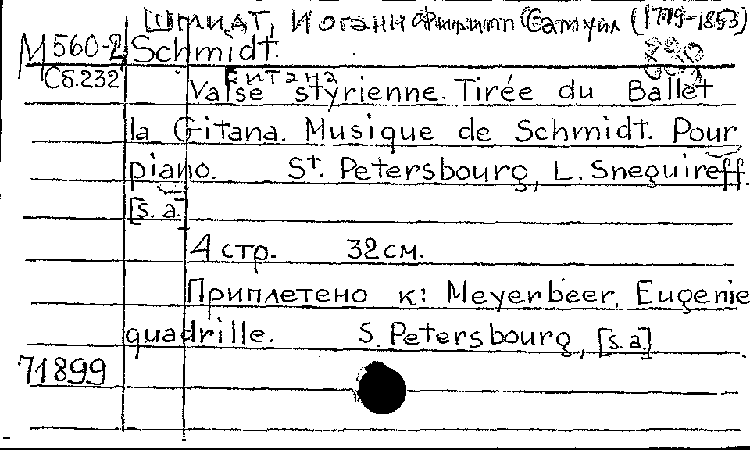 Шмидт, Иоганн Филипп Самуил (1779-1853)
М560-2 Schmidt.
Сб.232
Гитана
Valse styrienne. Tirée du Ballet
la Gitana. Musique de Schmidt. Pour
piano. St. Petersbourg, L. Sneguireff.
[s.a.]
4 стр. 32см.
Приплетено к: Meyerbeer, Eugenie
quadrille. S. Petersbourg, [s.a]
71899